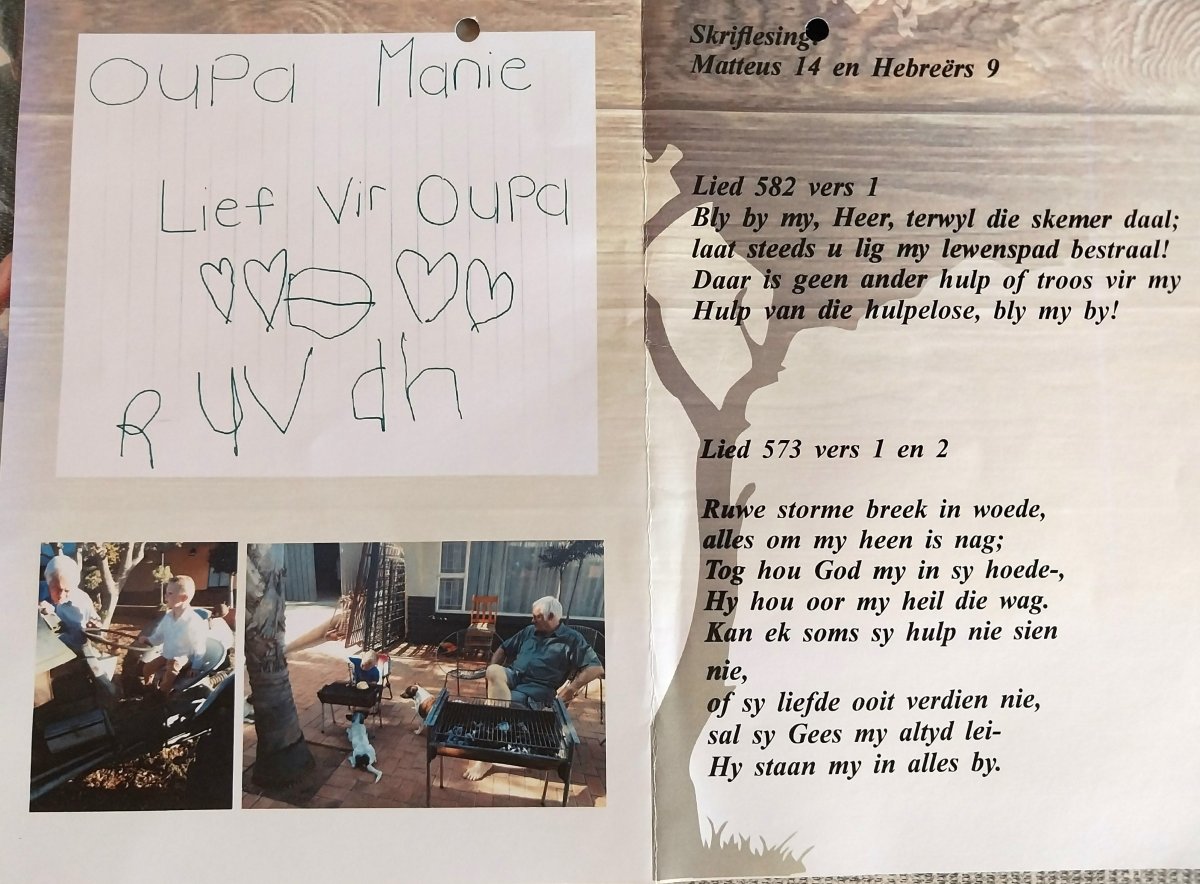 OUPa Manie
Lief Vir OUPa
R yV dh
Skriflesing:
Matteus 14 en Hebreërs 9
Lied 582 vers 1
Bly by my, Heer, terwyl die skemer daal;
laat steeds u lig my lewenspad bestraal!
Daar is geen ander hulp of troos vir my
Hulp van die hulpelose, bly my by!
Lied 573 vers 1 en 2
Ruwe storme breek in woede,
alles om my heen is nag;
Tog hou God my in sy hoede-,
Hy hou oor my heil die wag.
Kan ek soms sy hulp nie sien
nie,
of sy liefde ooit verdien nie,
sal sy Gees my altyd lei-
Hy staan my in alles by.